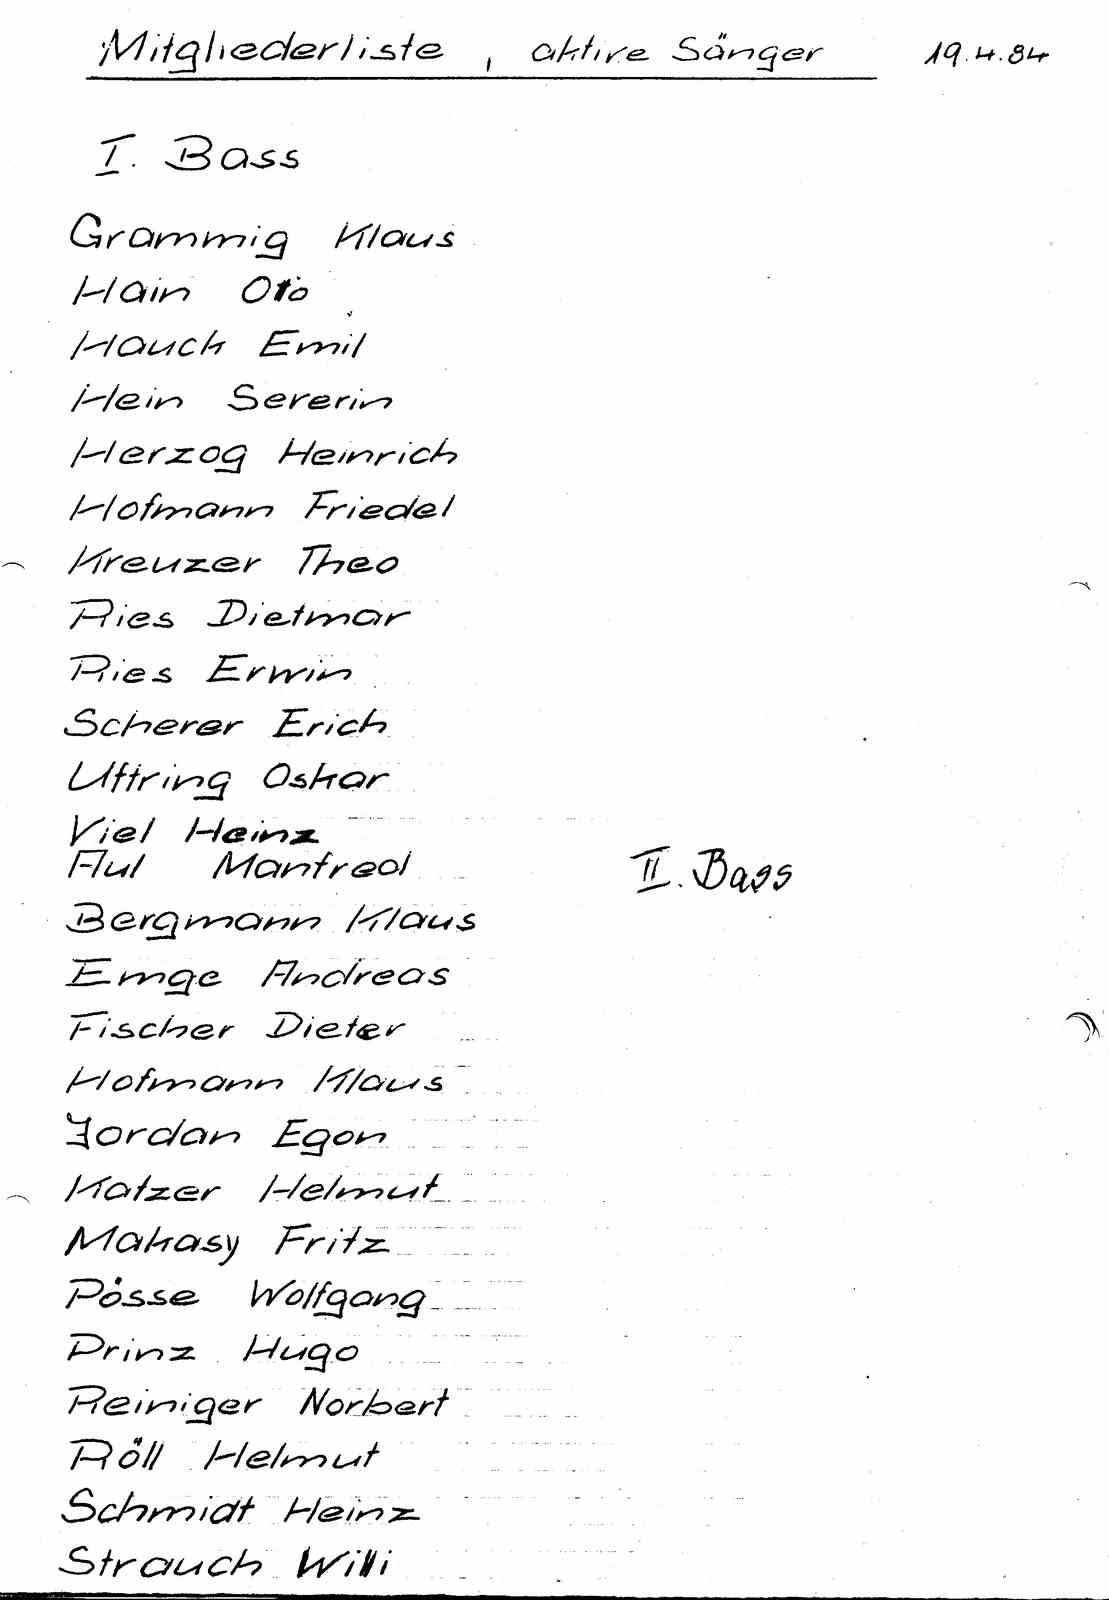 Mitgliederliste, aktive Sänger 19.4.84
I. Bass
Grammig Klaus
Hain Otto
Hauck Emil
Hein Severin
Herzog Heinrich
Hofmann Friedel
Kreuzer Theo
Ries Dietmar
Ries Erwin
Scherer Erich
Uftring Oskar
Viel Heinz
Aul Manfred
II. Bass
Bergmann Klaus
Emge Andreas
Fischer Dieter
Hofmann Klaus
Jordan Egon
Katzer Helmut
Makasy Fritz
Pösse Wolfgang
Prinz Hugo
Reiniger Norbert
Röll Helmut
Schmidt Heinz
Strauch Willi